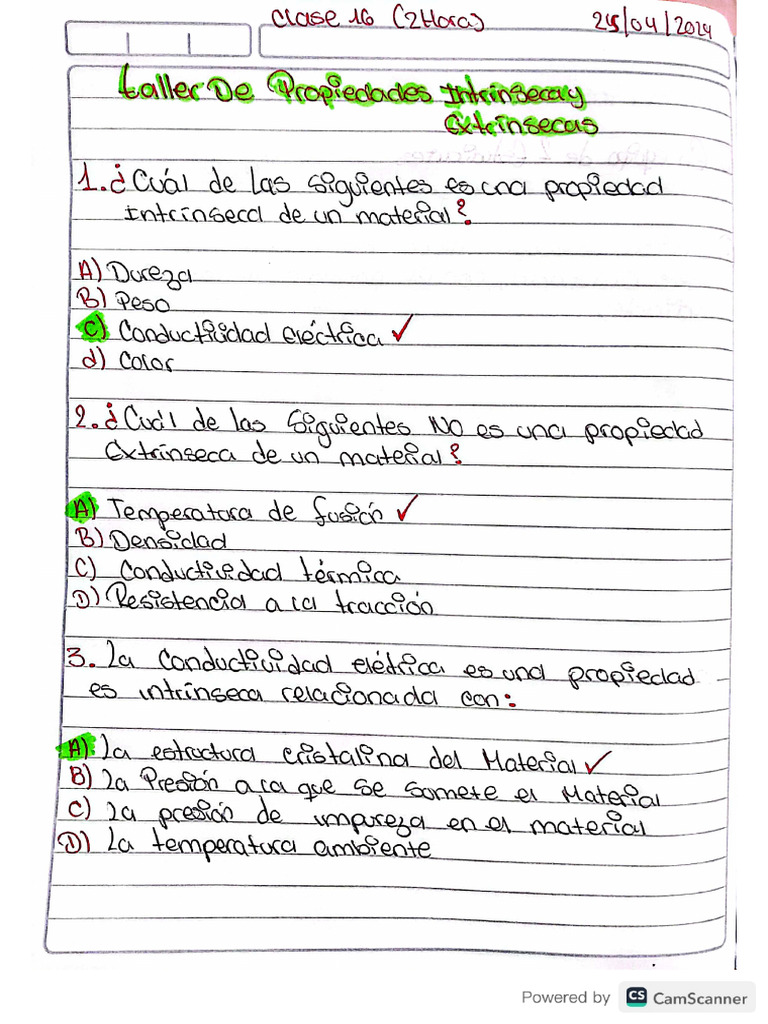 Clase 16 (2Hora)
25/04/2024
taller De Propiedades Intrinsecay
Extrínsecas
1. ¿Cuál de las siguientes es una propiedad
Intrínseca de un material?
A) Dureza
B) Peso
C) Conductividad eléctrica ✓
d) Color
2. ¿Cuál de las siguientes NO es una propiedad
Extrínseca de un material?
A) Temperatura de fusión ✓
B) Densidad
C) Conductividad térmica
D) Resistencia a la tracción
3. La conductividad eléctrica es una propiedad
es intrínseca relacionada con:
A) La estructura cristalina del Material ✓
B) La Presión a la que se somete el Material
C) La presión de impureza en el material
D) La temperatura ambiente
Powered by CS CamScanner